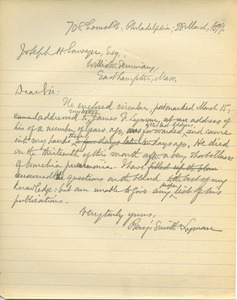 708 Locust St., Philadelphia, 28 March, 1891.
Joseph H. Sawyer, Esq.,
Williston Seminary,
Easthampton, Mass.
Dear Sir:
The enclosed circular, postmarked March 15,
addressed to James F. Lyman, at an address
of his of a number of years ago, was forwarded, and came
into my hands days ago. He died on
the thirteenth of this month after a very short illness
of bronchial pneumonia. I have
answered the questions with blank to the best of my
knowledge; but am unable to give any list of his
publications.
Very truly yours,
Benj. Smith Lyman